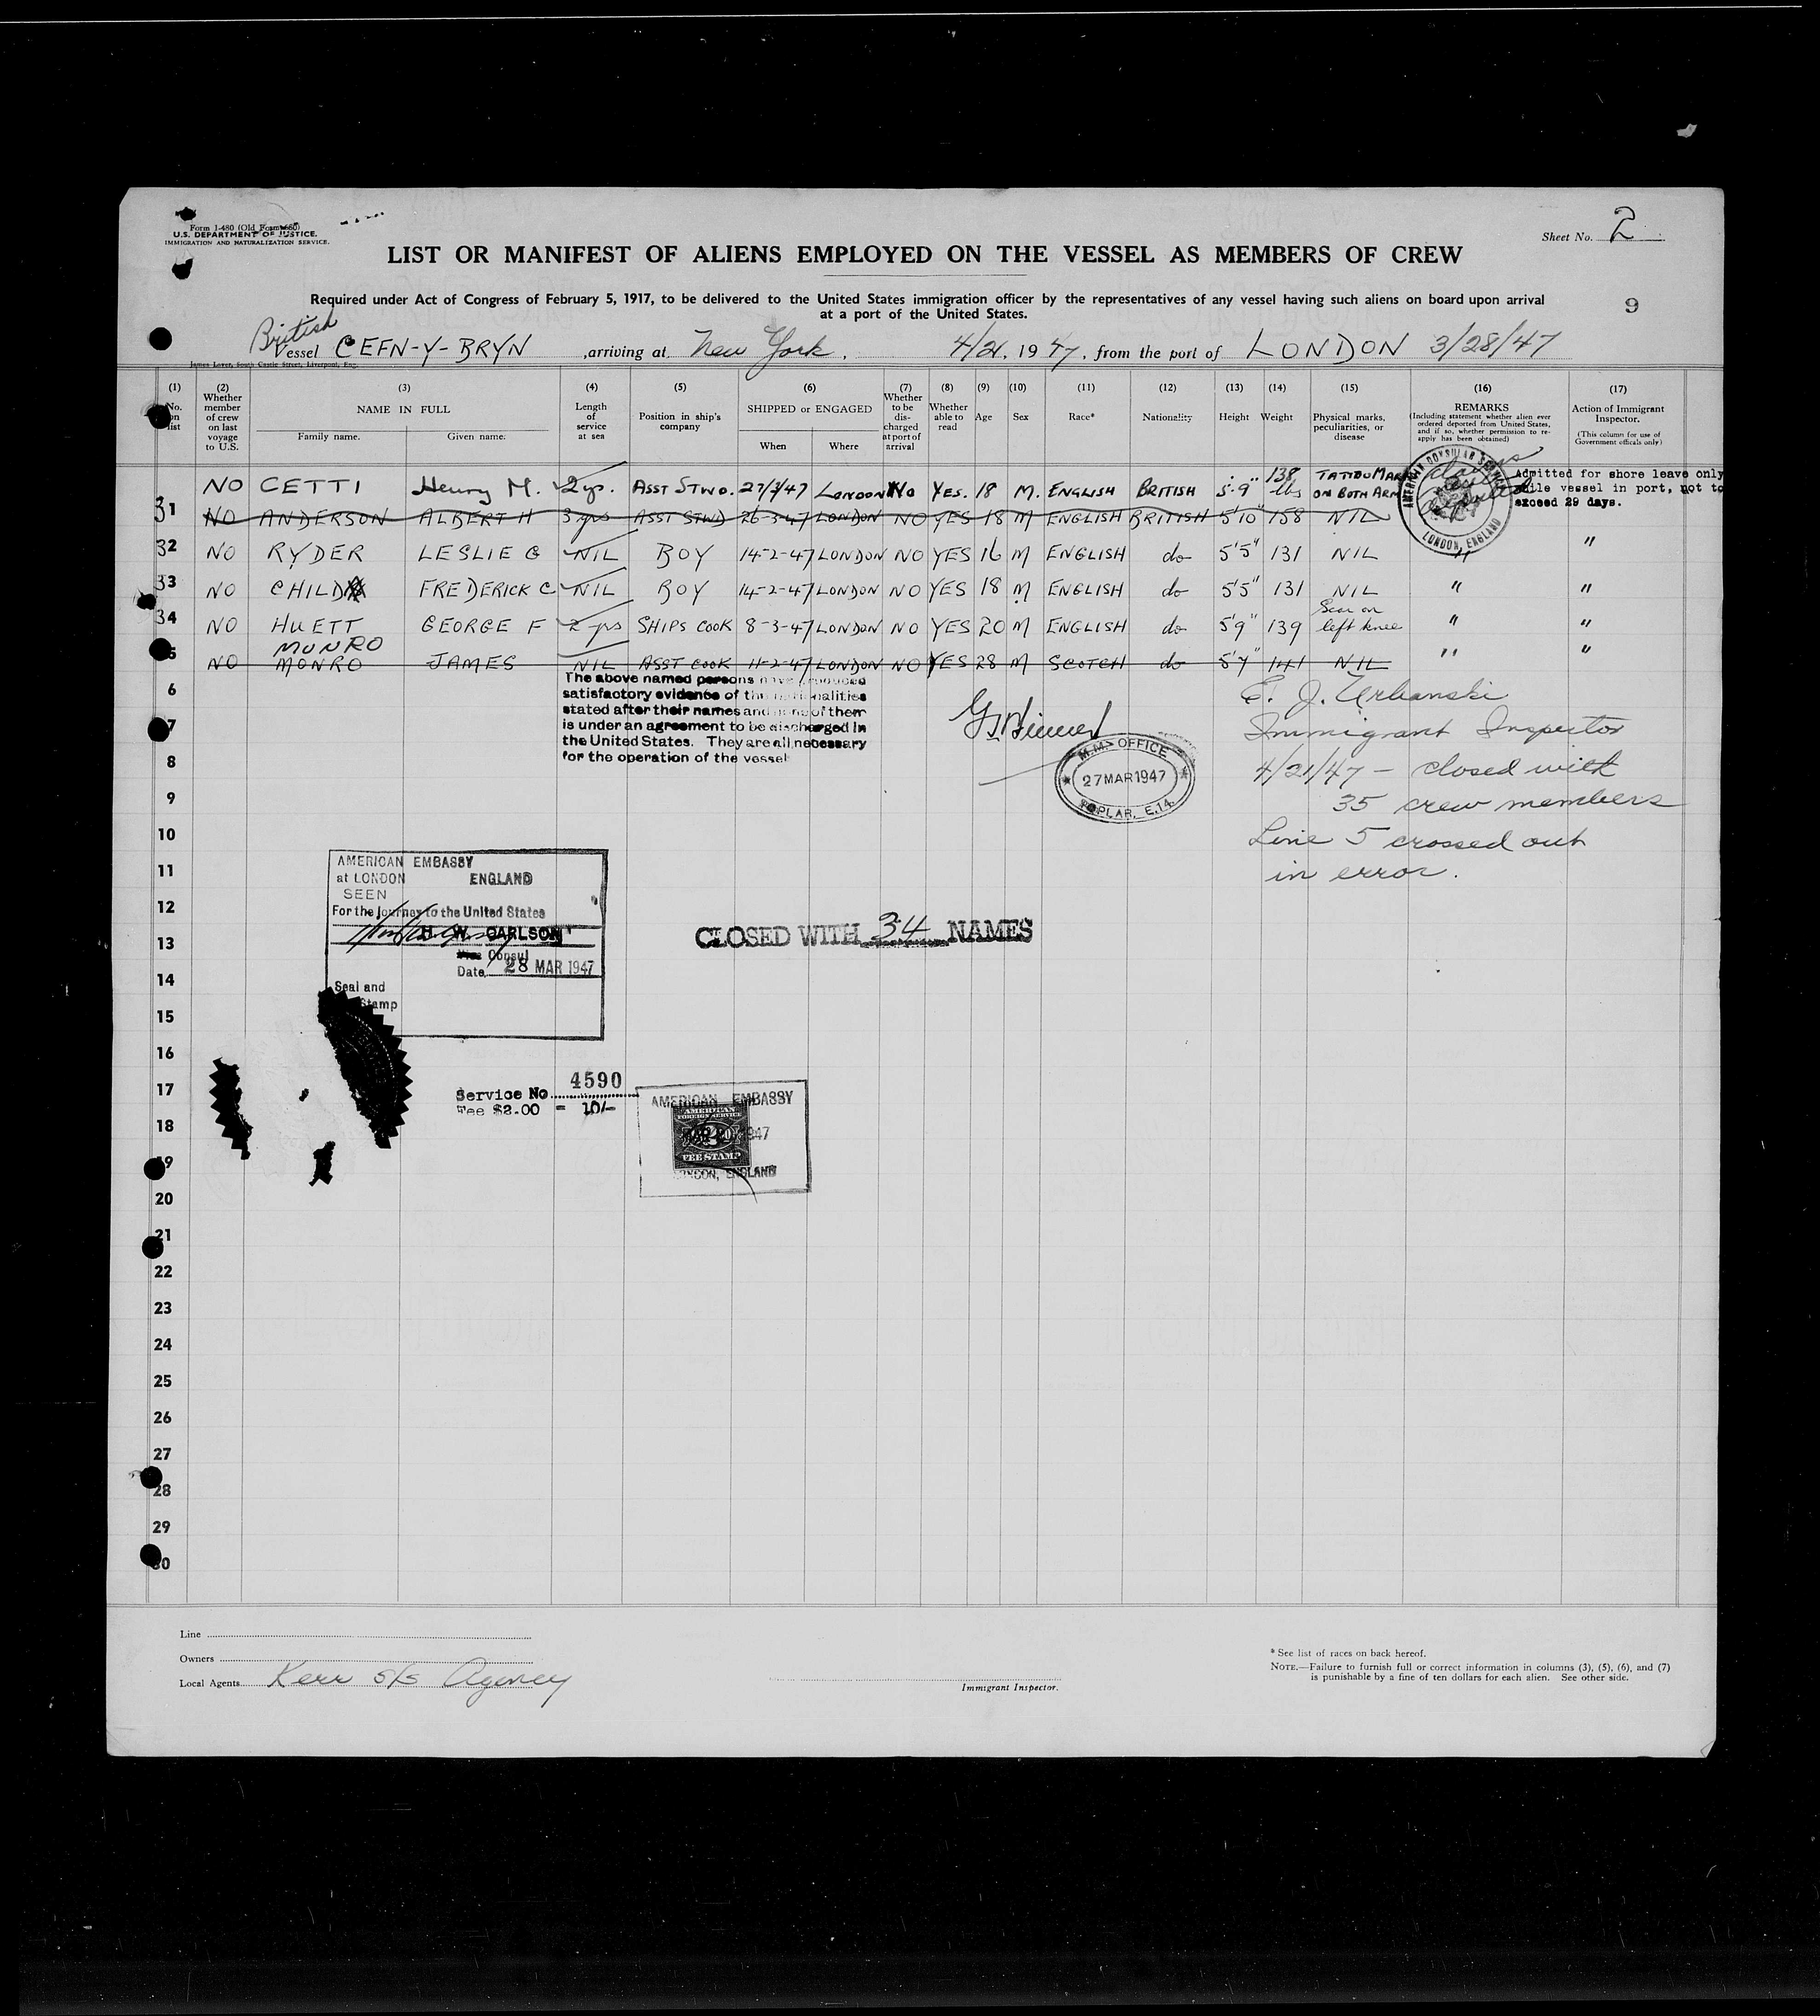 Form I-480 (Old Form 680)
U.S. DEPARTMENT OF JUSTICE.
IMMIGRATION AND NATURALIZATION SERVICE.
Sheet No. 2
LIST OR MANIFEST OF ALIENS EMPLOYED ON THE VESSEL AS MEMBERS OF CREW
Required under Act of Congress of February 5, 1917, to be delivered to the United States immigration officer by the representatives of any vessel having such aliens on board upon arrival
at a port of the United States.
9
British
Vessel CEFN-Y-BRYN ,arriving at New York, 4/21, 1947, from the port of LONDON 3/28/47
James Laver, South Castle Street, Liverpool, Eng.
(1) (2) (3) (4) (5) (6) (7) (8) (9) (10) (11) (12) (13) (14) (15) (16) (17)
No. on list
Whether member of crew on last voyage to U.S.
NAME IN FULL
Family name. Given name.
Length of service at sea
Position in ship's company
SHIPPED or ENGAGED
When Where
Whether to be discharged at port of arrival
Whether able to read
Age
Sex
Race*
Nationality
Height
Weight
Physical marks, peculiarities, or disease
REMARKS
(Including statement whether alien ever ordered deported from United States, and if so, whether permission to re-apply has been obtained)
Action of Immigrant Inspector.
(This column for use of Government officials only)
NO CETTI Henry M. 2 yr. ASST STWD. 27/3/47 LONDON NO YES. 18 M. ENGLISH BRITISH 5'.9" 138 lbs TATTOO MARK ON BOTH ARM
Admitted for shore leave only
while vessel in port, not to
exceed 29 days.
AMERICAN CONSULAR SERVICE
LONDON, ENGLAND
31 NO ANDERSON ALBERT H 3 yrs ASST STWD 26-3-47 LONDON NO YES 18 M ENGLISH BRITISH 5'10" 158 NIL
32 NO RYDER LESLIE G NIL BOY 14-2-47 LONDON NO YES 16 M ENGLISH do 5'5" 131 NIL " "
33 NO CHILD FREDERICK C NIL BOY 14-2-47 LONDON NO YES 18 M ENGLISH do 5'5" 131 NIL " "
34 NO HUETT GEORGE F 2 yrs SHIPS COOK 8-3-47 LONDON NO YES 20 M ENGLISH do 5'9" 139 Scar on left knee " "
MUNRO
5 NO MONRO JAMES NIL ASST COOK 11-2-47 LONDON NO YES 28 M SCOTCH do 5'7" 141 NIL " "
The above named persons have produced
satisfactory evidence of the nationalities
stated after their names and none of them
is under an agreement to be discharged in
the United States. They are all necessary
for the operation of the vessel
M.M. OFFICE
27 MAR 1947
POPLAR, E.14.
E. J. Urbanski
Immigrant Inspector
4/21/47 - closed with
35 crew members
Line 5 crossed out
in error.
6
7
8
9
10
11
12
13
14
15
16
17
18
19
20
21
22
23
24
25
26
27
28
29
30
AMERICAN EMBASSY
at LONDON ENGLAND
SEEN
For the journey to the United States
H. W. CARLSON
Vice Consul
Date 28 MAR 1947
Seal and
Stamp
CLOSED WITH 34 NAMES
Service No. 4590
Fee $2.00 = 10/-
AMERICAN EMBASSY
AMERICAN
FOREIGN SERVICE
FEE STAMP
LONDON, ENGLAND
Line
Owners
Local Agents Kerr S/S Agency
Immigrant Inspector.
* See list of races on back hereof.
NOTE.—Failure to furnish full or correct information in columns (3), (5), (6), and (7)
is punishable by a fine of ten dollars for each alien. See other side.